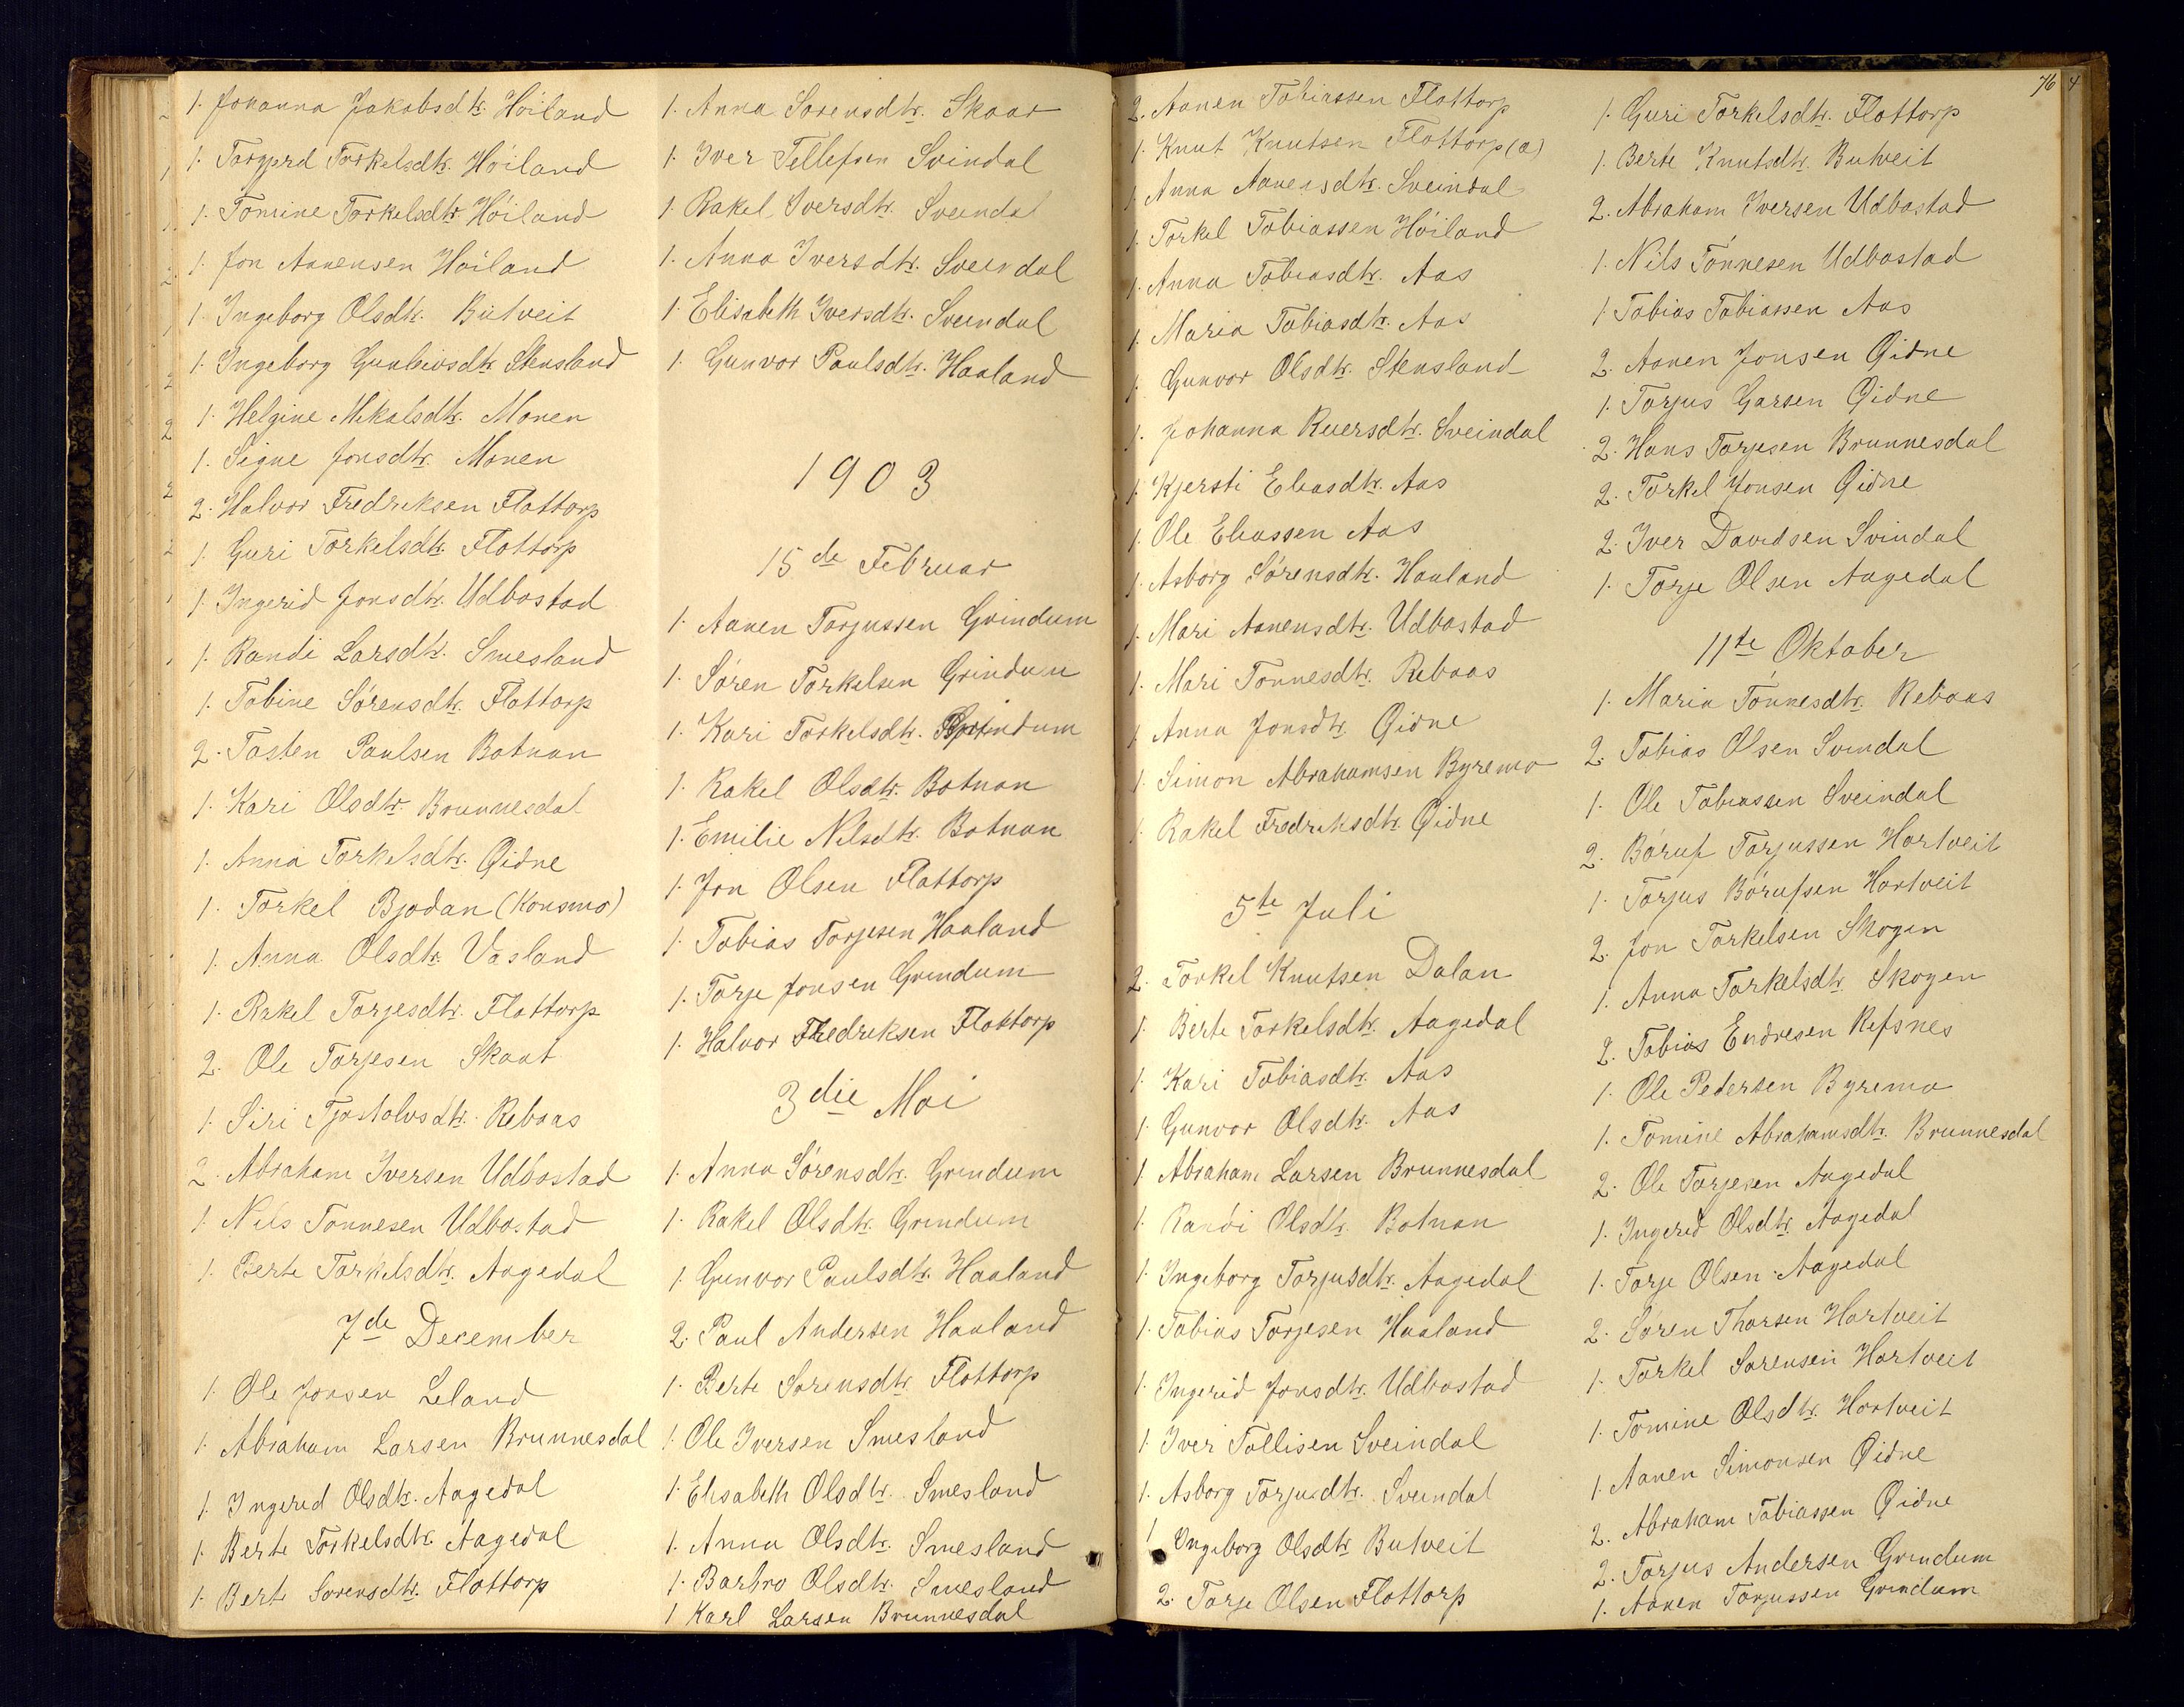 1. Johanna Jakobsdtr. Höiland
1. Torgerd Torkelsdtr. Höiland
1. Tomine Torkelsdtr. Höiland
1. Jon Aanensen Höiland
1. Ingeborg Olsdtr. Butveit
1. Ingeborg Gunleivsdtr. Stensland
1. Helgine Mikalsdtr. Monen
1. Signe Jonsdtr. Monen
2. Halvor Fredriksen Flottorp
1. Guri Torkelsdtr. Flottorp
1. Ingerid Jonsdtr. Udbostad
1. Randi Larsdtr. Smesland
1. Tobine Sörensdtr. Flottorp
2. Tosten Paulsen Botnan
1. Kari Olsdtr. Brunnesdal
1. Anna Torkelsdtr. Öidne
1. Torkel Bjodan (Konsmo)
1. Anna Olsdtr. Vasland
1. Rakel Torjesdtr. Flottorp
2. Ole Torjesen Skaar
1. Siri Tjostolvsdtr. Rebaas
2. Abraham Iversen Udbostad
1. Nils Tönnesen Udbostad
1. Berte Torkelsdtr. Aagedal
7de December
1. Ole Jonsen Leland
1. Abraham Larsen Brunnesdal
1. Ingered Olsdtr. Aagedal
1. Berte Torkelsdtr. Aagedal
1. Berte Sorensdtr. Flottorp
1. Anna Sorensdtr. Skaar
1. Iver Tellefsen Svindal
1. Rakel Iversdtr. Sveindal
1. Anna Iversdtr. Sveindal
1. Elisabeth Iversdtr. Sveindal
1. Gunvor Paulsdtr. Haaland
1903
15de Februar
1. Aanen Torjussen Grindum
1. Sören Torkelsen Grindum
1. Kari Torkelsdtr. Grindum
1. Rakel Olsdtr. Botnan
1. Emilie Nilsdtr. Botnan
1. Jon Olsen Flottorp
1. Tobias Torjesen Haaland
1. Torje Jonsen Grindum
1. Halvor Fredriksen Flottorp
3die Mai
1. Anna Sörensdtr. Grindum
1. Rakel Olsdtr. Grindum
1. Gunvor Paulsdtr. Haaland
2. Paul Andersen Haaland
1. Berte Sorensdtr. Flottorp
1. Ole Iversen Smesland
1. Elisabeth Olsdtr. Smesland
1. Anna Olsdtr. Smesland
1. Barbro Olsdtr. Smesland
1 Karl Larsen Brunnesdal
76
2. Aanen Tobiassen Flottorp
1. Knut Knutsen Flottorp (a)
1. Anna Aanensdtr. Sveindal
1. Torkel Tobiassen Höiland
1. Anna Tobiasdtr. Aas
1. Maria Tobiasdtr. Aas
1. Gunvor Olsdtr. Stensland
1. Johanna Reiersdtr. Sveindal
1. Kjersti Eliasdtr. Aas
1. Ole Eliassen Aas
1. Asborg Sörensdtr. Haaland
1. Mari Aanensdtr. Udbostad
1. Mari Tönnesdtr. Rebaas
1. Anna Jonsdtr. Öidne
1. Simon Abrahamsen Byremo
1. Rakel Fredriksdtr. Öidne
5te Juli
2. Torkel Knutsen Dalan
1. Berte Torkelsdtr. Aagedal
1. Kari Tobiasdtr. Aas
1. Gunvor Olsdtr. Aas
1. Abraham Larsen Brunnesdal
1. Randi Olsdtr. Botnan
1. Ingeborg Torjusdtr. Aagedal
1. Tobias Torjesen Haaland
1. Ingerid Jonsdtr. Udbostad
1. Iver Tollisen Sveindal
1. Asborg Torjusdtr. Sveindal
1. Ingeborg Olsdtr. Butveit
2. Torje Olsen Flottorp
1. Guri Torkelsdtr. Flottorp
1. Berte Knutsdtr. Butveit
2. Abraham Iversen Udbostad
1. Nils Tönnesen Udbostad
1 Tobias Tobiassen Aas
2. Aanen Jonsen Öidne
1. Torjus Garsen Öidne
2. Hans Torjesen Brunnesdal
2. Torkel Jonsen Öidne
2. Iver Davidsen Svindal
1. Torje Olsen Aagedal
11te Oktober
1. Maria Tönnesdtr. Rebaas
2. Tobias Olsen Svindal
1. Ole Tobiassen Sveindal
2. Böruf Torjussen Hortveit
1. Torjus Börufsen Hortveit
2. Jon Torkelsen Skogen
1. Anna Torkelsdtr. Skogen
2. Tobias Endresen Refsnes
1. Ole Pedersen Byremo
1. Tomine Abrahamsdtr. Brunnesdal
2. Ole Torjesen Aagedal
1. Ingerid Olsdtr. Aagedal
1. Torje Olsen Aagedal
2. Sören Thorsen Hortveit
1. Torkel Sorensen Hortveit
1. Tomine Olsdtr. Hortveit
1. Aanen Simonsen Öidne
2. Abraham Tobiassen Öidne
2. Torjus Andersen Grindum
1. Aanen Torjussen Grindum